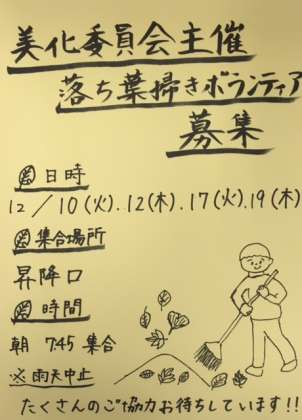 美化委員会主催
落ち葉掃きボランティア
募集
日時
12/10(火).12(木).17(火).19(木)
集合場所
昇降口
時間
朝 7:45 集合
※雨天中止
たくさんのご協力お待ちしています!!